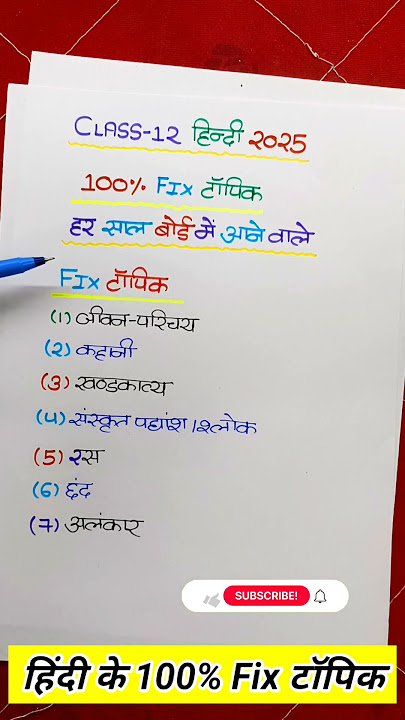 CLASS-12 हिन्दी 2025
100% FIX टॉपिक
हर साल बोर्ड में आने वाले
FIX टॉपिक
(1) जीवन-परिचय
(2) कहानी
(3) खण्डकाव्य
(4) संस्कृत पद्यांश/श्लोक
(5) रस
(6) छंद
(7) अलंकार
SUBSCRIBE!
हिंदी के 100% Fix टॉपिक